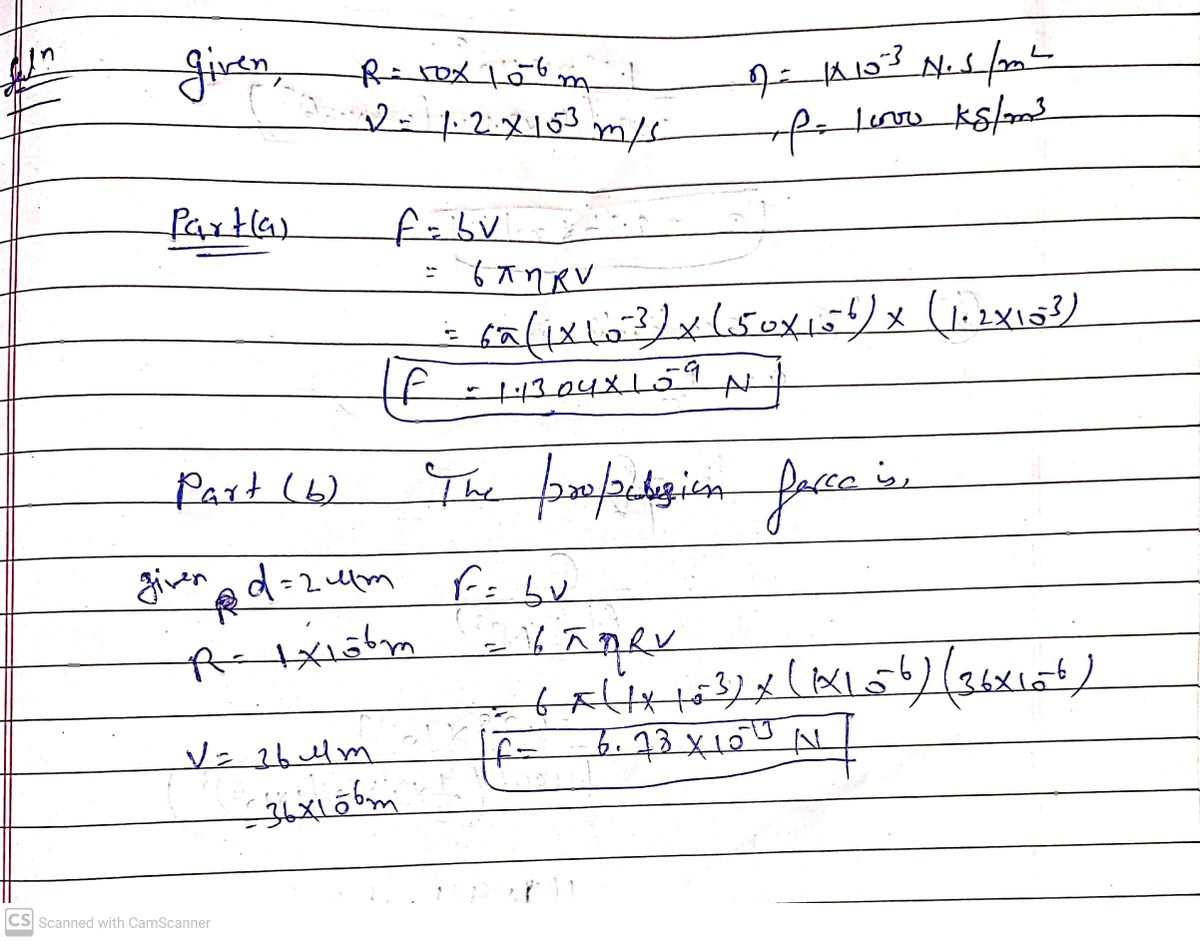 Solⁿ given, R = 50x10⁻⁶ m η = 1x10⁻³ N.s/m²
V = 1.2 x 10⁻³ m/s , ρ = 1000 kg/m³
Part (a) F = bv
= 6πηRV
= 6π(1x10⁻³)x(50x10⁻⁶)x(1.2x10⁻³)
F = 1.1304x10⁻⁹ N
Part (b) The force is,
given d = 2 μm F = bv
R = 1x10⁻⁶m = 6πηRV
= 6π(1x10⁻³)x(1x10⁻⁶)(36x10⁻⁶)
V = 36 μm F = 6.73 x10⁻¹³ N
= 36x10⁻⁶m
CS Scanned with CamScanner